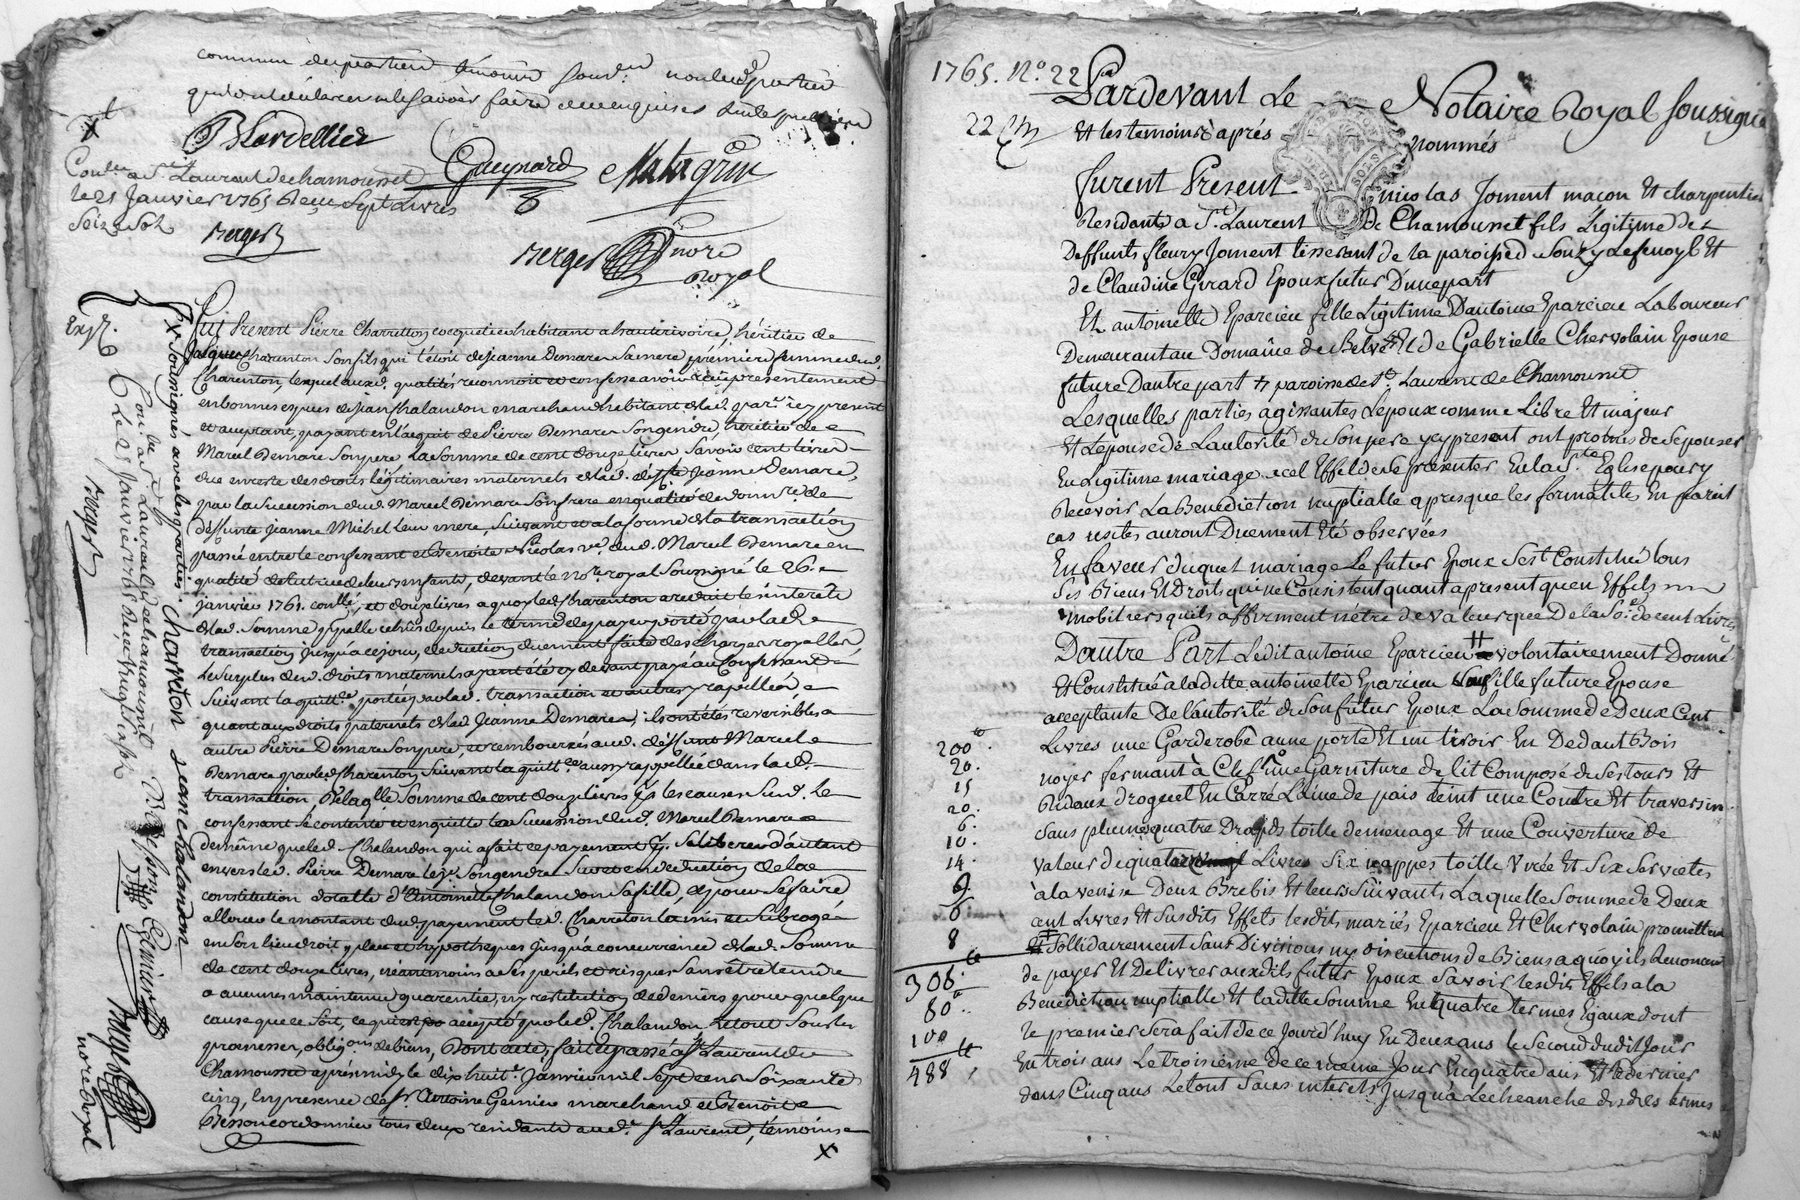 commun
qui ont déclaré ne le savoir faire de ce enquises
BLardellier
Gueynard
Matagrin
Con.lé a St. Laurent de chamousset
le 21 Janvier 1765 Reçu Sept Livres
Seize Sols
Berger
Berger nore
Royal
Exp.
Fut Present Pierre Charretton cocquetier habitant a hauterivoire, héritier de
Jacques Charenton son fils qui l'étoit de Jeanne Demare sa mere, premiere femme dud.
Charenton, lequel auxd. qualités reconnoit et confesse avoir reçu presentement
en bonnes especes de Jean Chalandon marchand habitant de lad. par. icy present
et acceptant, payant en l'acquit de Pierre Demare son gendre, héritier de
Marcel Demare son pere La somme de cent douze livres Savoir cent livres
due en reste des droits légitimaires maternels de lad. deff.te Jeanne Demare,
par la succession dud. Marcel Demare son frere en qualité de
deffunte Jeanne Michel leur mere, suivant et a la forme de la transaction
passée entre le confessant et Benoite Nicolas ve. dud. Marcel Demare en
qualité de tutrice de leurs enfants, devant le no.re royal soussigné le 26.e
janvier 1761. con.llé, et douze livres a quoy led. Charenton a reduit les interets
de lad. somme depuis le terme de payer porté par lad.
transaction jusqu'a ce jour, deduction duement faite des charges royalles
Le surplus desd. droits maternels ayant été cy devant payé au Confessant
suivant la quitt.ce portée par lad. transaction et autres y rapellées,
quant aux droits paternels de lad. Jeanne Demare, ils ont étés reversibles a
autre Pierre Demare son pere, et remboursés aud. deffunt Marcel
Demare par led. Charenton suivant la quitt.ce aussy rappellée dans lad.
transaction, De laq.lle Somme de cent douze livres p.r les causes susd. Le
confessant se contente et en quitte la succession dud. Marcel Demare
de même que led. Chalandon qui a fait ce payement p.r se liberer d'autant
envers led. Pierre Demare le j.e son gendre sur et en deduction de la
constitution dotalle d'Antoinette Chalandon sa fille, et pour se faire
allouer le montant dud. payement led. Charreton l'a mis et subrogé
en son lieu droit, place et hypotheques jusqu'a concurrence de lad. Somme
de cent douze livres, néantmoins a ses perils et risques sans être tenu de
aucunes maintenue garentie, ny restitution de deniers pour quelque
cause que ce soit, ce qui est accepté par led. Chalandon le tout sous les
promesses, oblig.ons de biens, Dont acte, fait et passé a St. Laurent de
Chamousset apres midy le dix huit.e Janvier mil sept cens soixante
cinq, En presence de S.r Antoine Gemier marchand et Benoit
Besson cordonnier tous deux residants aud. St. Laurent, témoins
x
x soussignés avec les parties. Charreton Jean chalandon
Con.lé a St. Laurent de chamousset
Le 21 Janvier 1765 Recu
Berger
B Besson Gemier
Berger
nore Royal
1765. No. 22
22
Pardevant Le Notaire Royal soussigné
Et les temoins aprés nommés
furent Present nicolas Joment macon Et charpentier
Residant a St. Laurent De Chamousset fils Légitime de
Deffunts fleury Joment tisserant de la paroisse de Souzy Et
de Claudine Girard Epoux futur D'une part
Et antoinette Eparcieu fille Légitime D'antoine Eparcieu Laboureur
Demeurant au Domaine du # Et de Gabrielle Chervolain Epouse
future D'autre part # paroisse de St. Laurent de Chamousset
Lesquelles parties agissantes L'epoux comme Libre Et majeur
Et L'epouse de L'autorité de son pere ycy present ont promis de s'epouser
En Légitime mariage a cel Effet de se presenter En la Ste. Eglise pour y
Recevoir La Benediction nuptialle apres que les formalités En pareil
cas usités auront Duement Eté observées
En faveur duquel mariage Le futur Epoux s'est Constitué tous
ses Biens Et Droits qui ne Consistent quant a present qu'en Effets
mobiliers qu'ils affirment n'être de valeur que De la So.e de cent Livres
D'autre Part Ledit antoine Eparcieu # volontairement Donné
Et Constitué a laditte antoinette Eparcieu sa fille future Epouse
acceptante De L'autorité de son futur Epoux La somme de Deux Cent
Livres une Garderobe a une porte Et un tiroir En Dedant Bois
noyer fermant à Clef, une Garniture de lit Composé de ses tours Et
Rideaux droguet En Carré Laine de pais teint une Coudre Et traversin
sans plume, quatre Draps toille de menage Et une Couverture de
valeur de quatorze Livres Six nappes toille Et Six serviétes
à la venise Deux Brebis Et leurs suivants Laquelle somme de Deux
cent Livres Et susdits Effets lesdits mariés Eparcieu Et Chervolain promettent
Sollidairement sans Divisions ny discutions de Biens a quoy ils Renoncent
de payer Et Delivrer auxdits futur Epoux savoir lesdits Effets a la
Benediction nuptialle Et laditte somme En quatre termes Egaux dont
le premier sera fait de ce Jourd'huy En Deux ans le second dudit Jour
En trois ans Le troisième de ce même Jour En quatre ans Et le dernier
dans Cinq ans Le tout sans interets Jusqu'à L'echeance desdits termes
200tt.
20.
15
20.
6.
10.
14.
9.
6
8
308.tt
80..
100
488tt